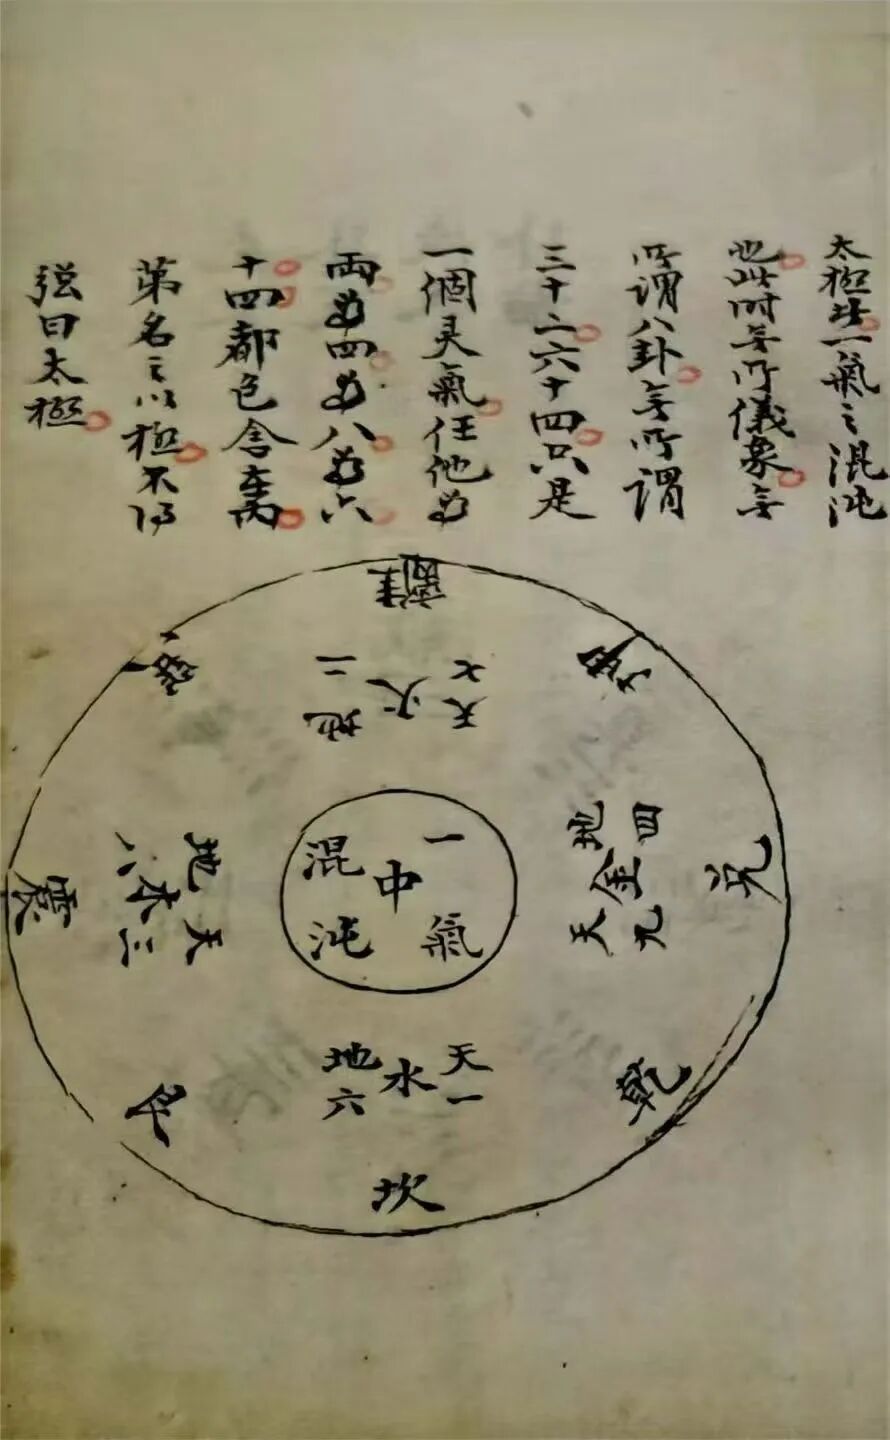 太極此一氣之混沌
也此时無所儀象無
所謂八卦無所謂
三十二六十四只是
一個灵氣任他為
兩為四為八為六
十四都包含在內
第名之以極不得
强曰太極
離
坤
兌
乾
坎
艮
震
巽
天七
火
地二
地四
金
天九
天一
水
地六
天三
木
地八
一氣
中
混沌